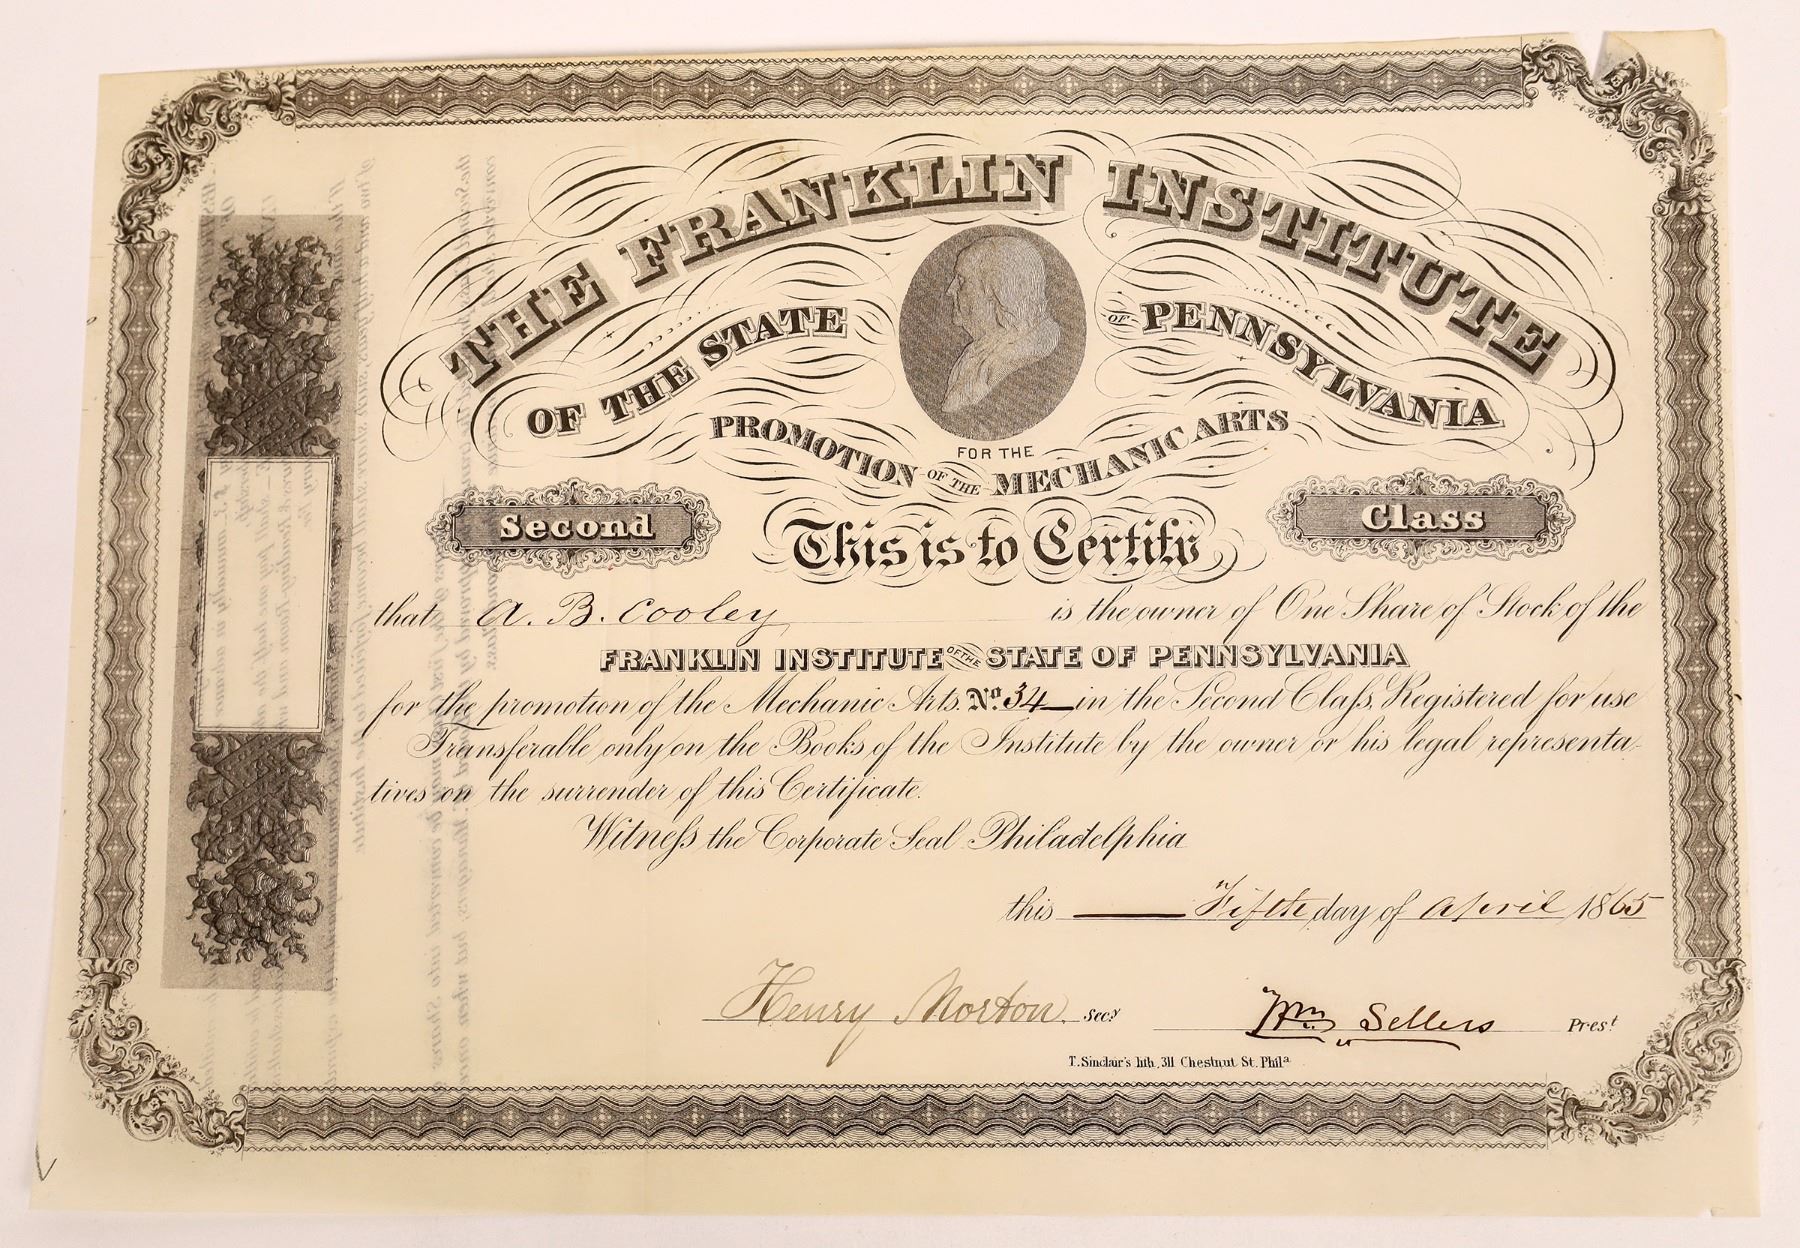 THE FRANKLIN INSTITUTE
OF THE STATE OF PENNSYLVANIA
FOR THE
PROMOTION OF THE MECHANIC ARTS
Second Class
This is to Certify
that A. B. Cooley is the owner of One Share of Stock of the
FRANKLIN INSTITUTE OF THE STATE OF PENNSYLVANIA
for the promotion of the Mechanic Arts. No. 34 in the Second Class, Registered for use
Transferable only on the Books of the Institute by the owner or his legal representa-
tives on the surrender of this Certificate.
Witness the Corporate Seal Philadelphia
this Fifth day of April 1865
Henry Morton Secy
Wm Sellers Prest
T. Sinclair's lith, 311 Chestnut St. Phila